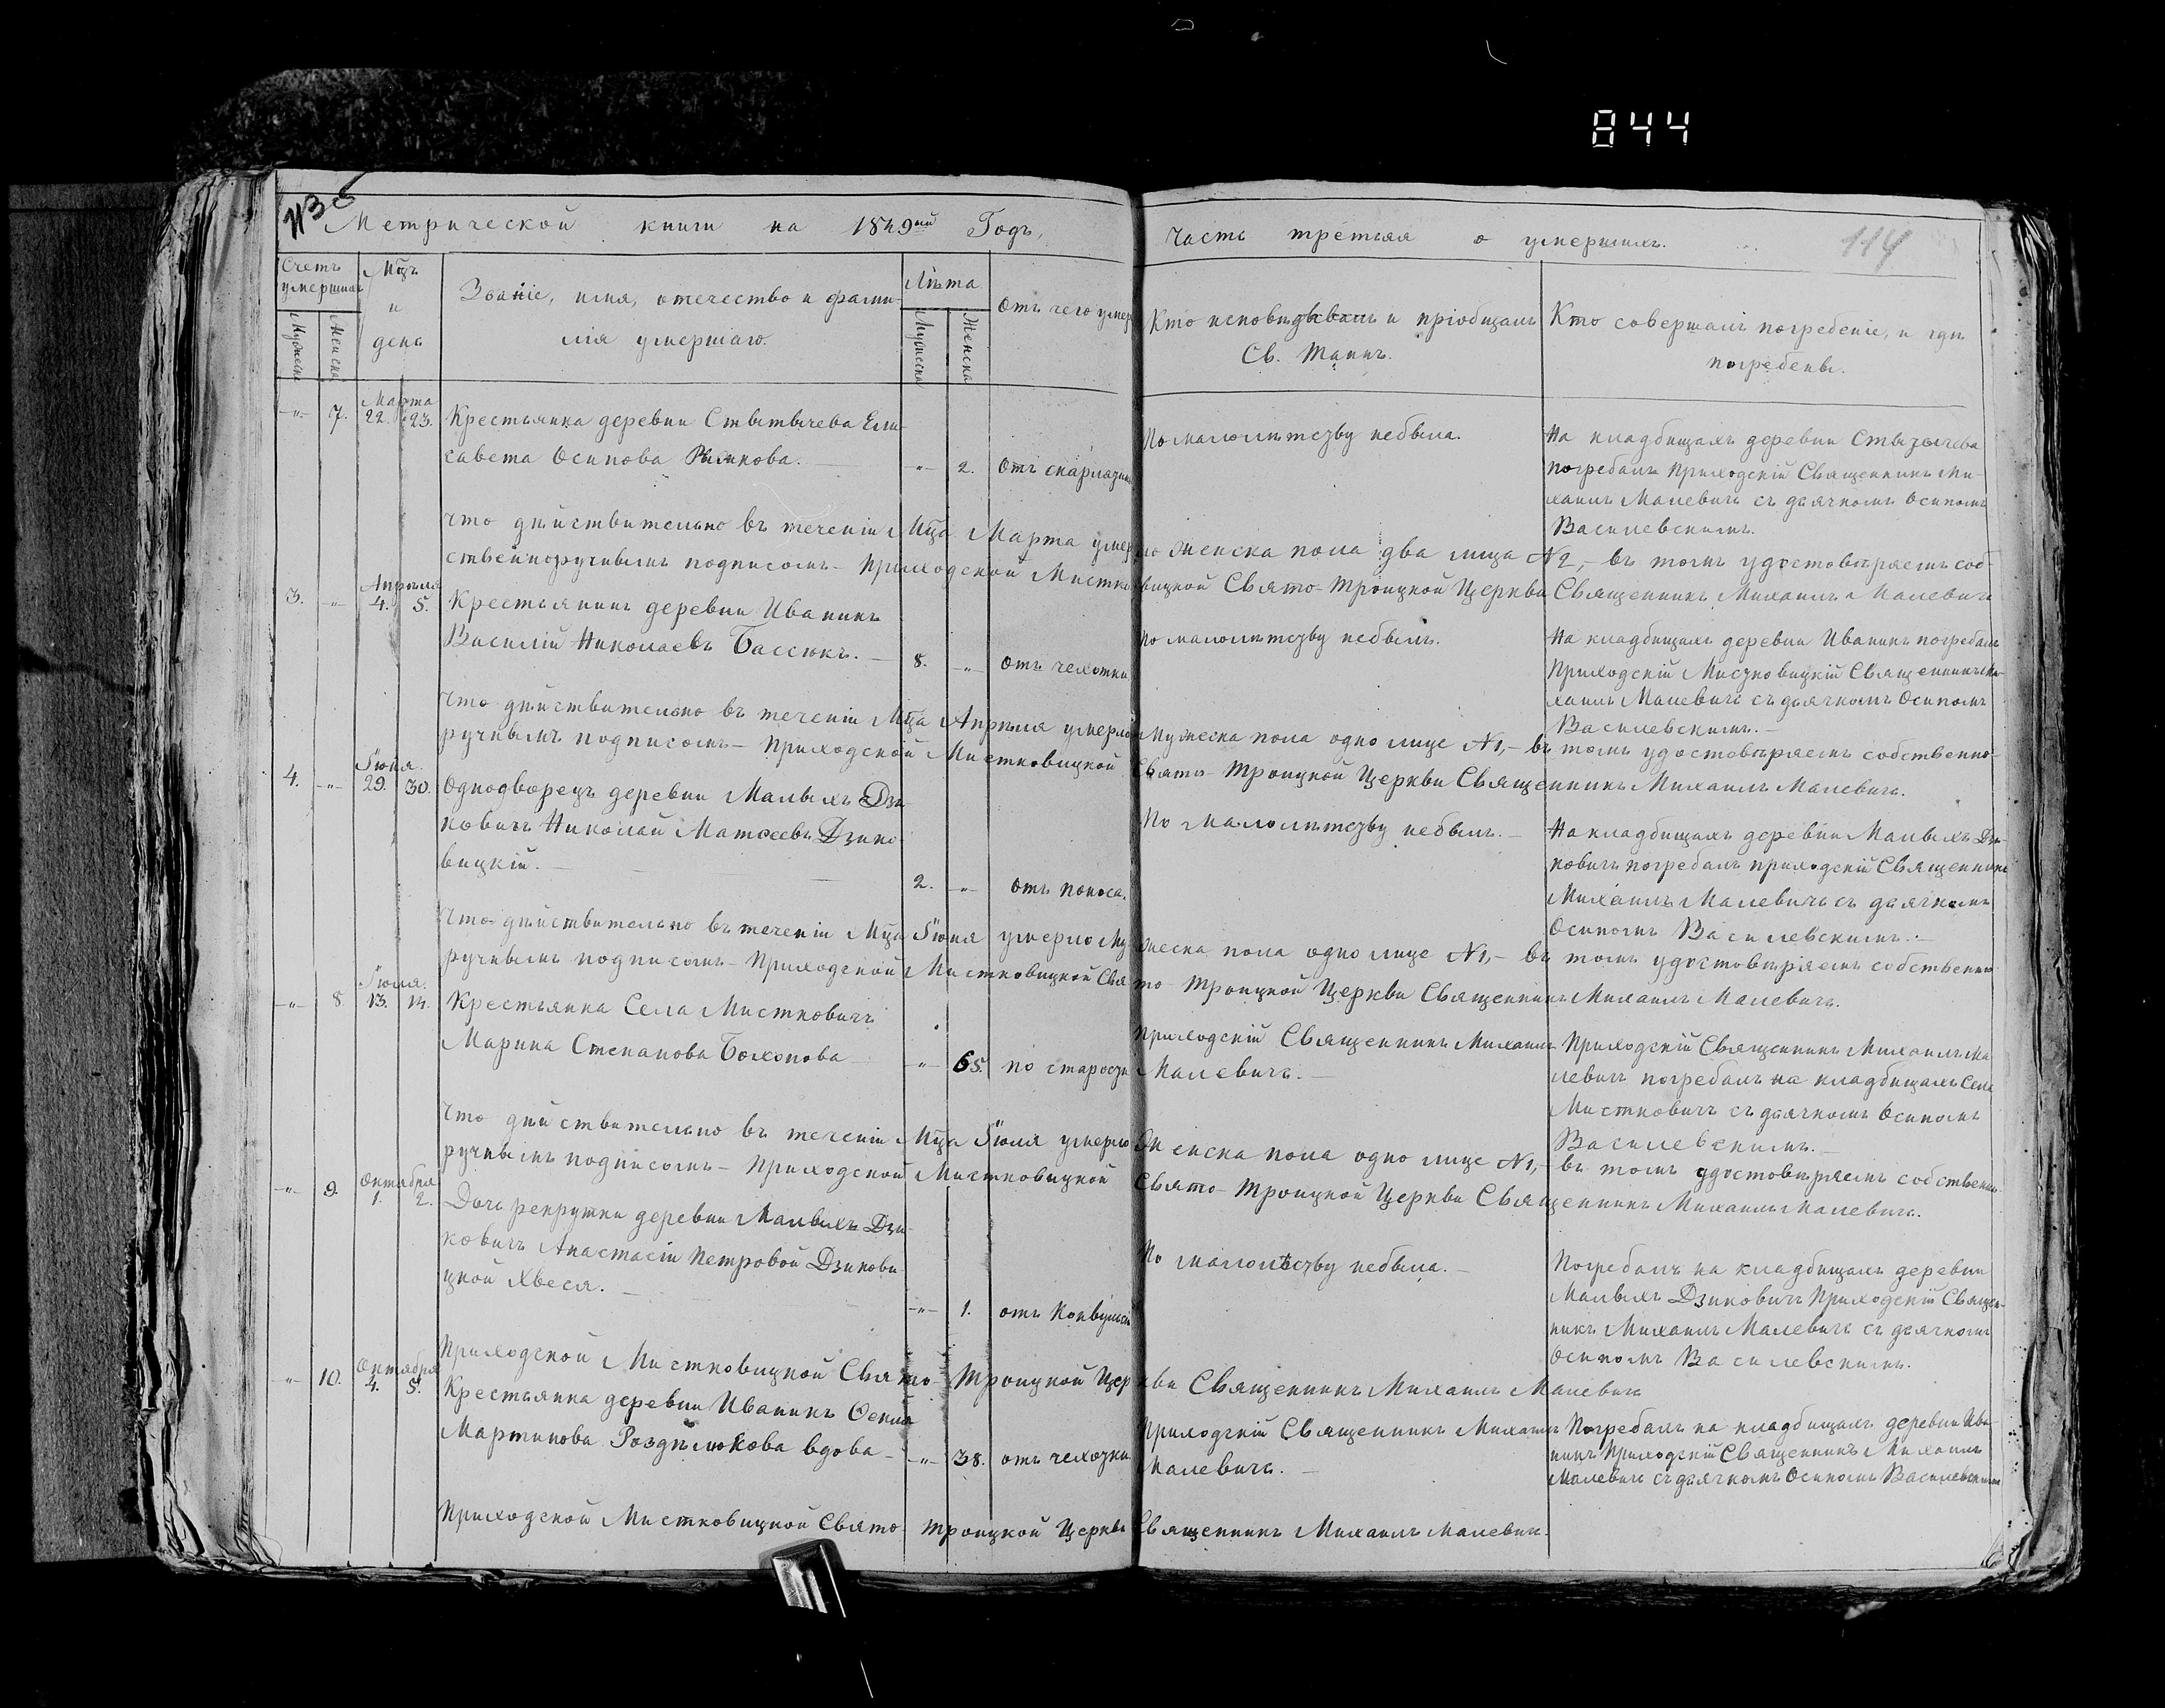 844
113 об
114
Метрической книги на 1849ый Годъ,
Часть третья о умершихъ.
Счетъ умершихъ
Мужеска
Женска
Мцъ и день
Званіе, имя, отечество и фами-
лія умершаго.
Лѣта
Мужеска
Женска
Отъ чего умеръ
Кто исповѣдывалъ и пріобщалъ
Св. Таинъ.
Кто совершалъ погребеніе, и гдѣ
погребены.
-"- 7. Марта 22. 23.
Крестьянка деревни Стытычева Ели-
савета Осипова
-"- 2. Отъ скарлатины
По малолѣтству небыла.
На кладбищахъ деревни Стытычева
погребалъ Приходскій Священникъ Ми-
хаилъ Малевичъ съ дьячкомъ Осипомъ
Василевскимъ.
Что дѣйствительно въ теченіи Мца Марта умерло женска пола два лица №2,- въ томъ удостовѣряемъ соб-
ственноручнымъ подписомъ- Приходской Мистковицкой Свято-Троицкой Церкви Священникъ Михаилъ Малевичъ
3. -"- Апрѣля 4. 5.
Крестьянинъ деревни Иваникъ
Василій Николаевъ Бассюкъ.
8. -"- отъ чехотки
По малолѣтству небылъ.
На кладбищахъ деревни Иваникъ погребалъ
Приходскій Мистковицкій Священникъ Ми-
хаилъ Малевичъ съ дьячкомъ Осипомъ
Василевскимъ.-
Что дѣйствительно въ теченіи Мца Апрѣля умерло Мужеска пола одно лице №1,- въ томъ удостовѣряемъ собственно-
ручнымъ подписомъ- Приходской Мистковицкой Свято-Троицкой Церкви Священникъ Михаилъ Малевичъ.
4. -"- Іюня. 29. 30.
Однодворецъ деревни Малыхъ Дзи-
ковичъ Николай Матѳеевъ Дзико-
вицкій.
2. -"- отъ поноса.
По малолѣтству небылъ.-
На кладбищахъ деревни Малыхъ Дзи-
ковичъ погребалъ приходскій Священникъ
Михаилъ Малевичъ съ дьячкомъ
Осипомъ Василевскимъ.-
Что дѣйствительно въ теченіи Мца Іюня умерло Мужеска пола одно лице №1,- въ томъ удостовѣряемъ собственно
ручнымъ подписомъ- Приходской Мистковицкой Свято-Троицкой Церкви Священникъ Михаилъ Малевичъ.
-"- 8. Іюля. 13. 14.
Крестьянка Села Мистковичъ
Марина Степанова Болхопова
-"- 65. по старости
Приходскій Священникъ Михаилъ
Малевичъ.-
Приходскій Священникъ Михаилъ Ма
левичъ погребалъ на кладбищахъ Села
Мистковичъ съ дьячкомъ Осипомъ
Василевскимъ.
Что дѣйствительно въ теченіи Мца Іюля умерло Женска пола одно лице №1,- въ томъ удостовѣряемъ собственно
ручнымъ подписомъ- Приходской Мистковицкой Свято-Троицкой Церкви Священникъ Михаилъ Малевичъ.
-"- 9. Октября 1. 2.
Дочь рекрутки деревни Малыхъ Дзи-
ковичъ Анастасіи Петровой Дзикови-
цкой Хвеся.
-"- 1. отъ Конвульсіи
По малолѣтству небыла.-
Погребалъ на кладбищахъ деревни
Малыхъ Дзиковичъ Приходскій Священ-
никъ Михаилъ Малевичъ съ дьячкомъ
Осипомъ Василевскимъ.
Приходской Мистковицкой Свято-Троицкой Церкви Священникъ Михаилъ Малевичъ
-"- 10. Октября 4. 5.
Крестьянка деревни Иваникъ
Мартинова Роздѣлюкова вдова-
-"- 38. отъ чехотки
Приходскій Священникъ Михаилъ
Малевичъ.-
Погребалъ на кладбищахъ деревни Ива-
никъ Приходскій Священникъ Михаилъ
Малевичъ съ дьячкомъ Осипомъ Василевскимъ
Приходской Мистковицкой Свято Троицкой Церкви Священникъ Михаилъ Малевичъ.